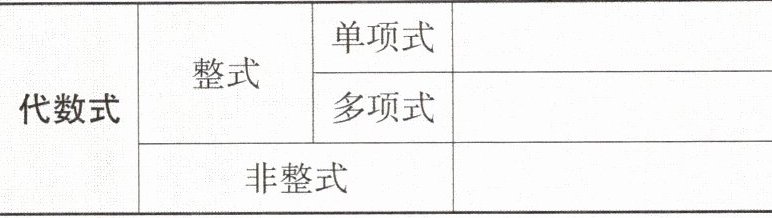 单项式
整式
代数式
多项式
非整式